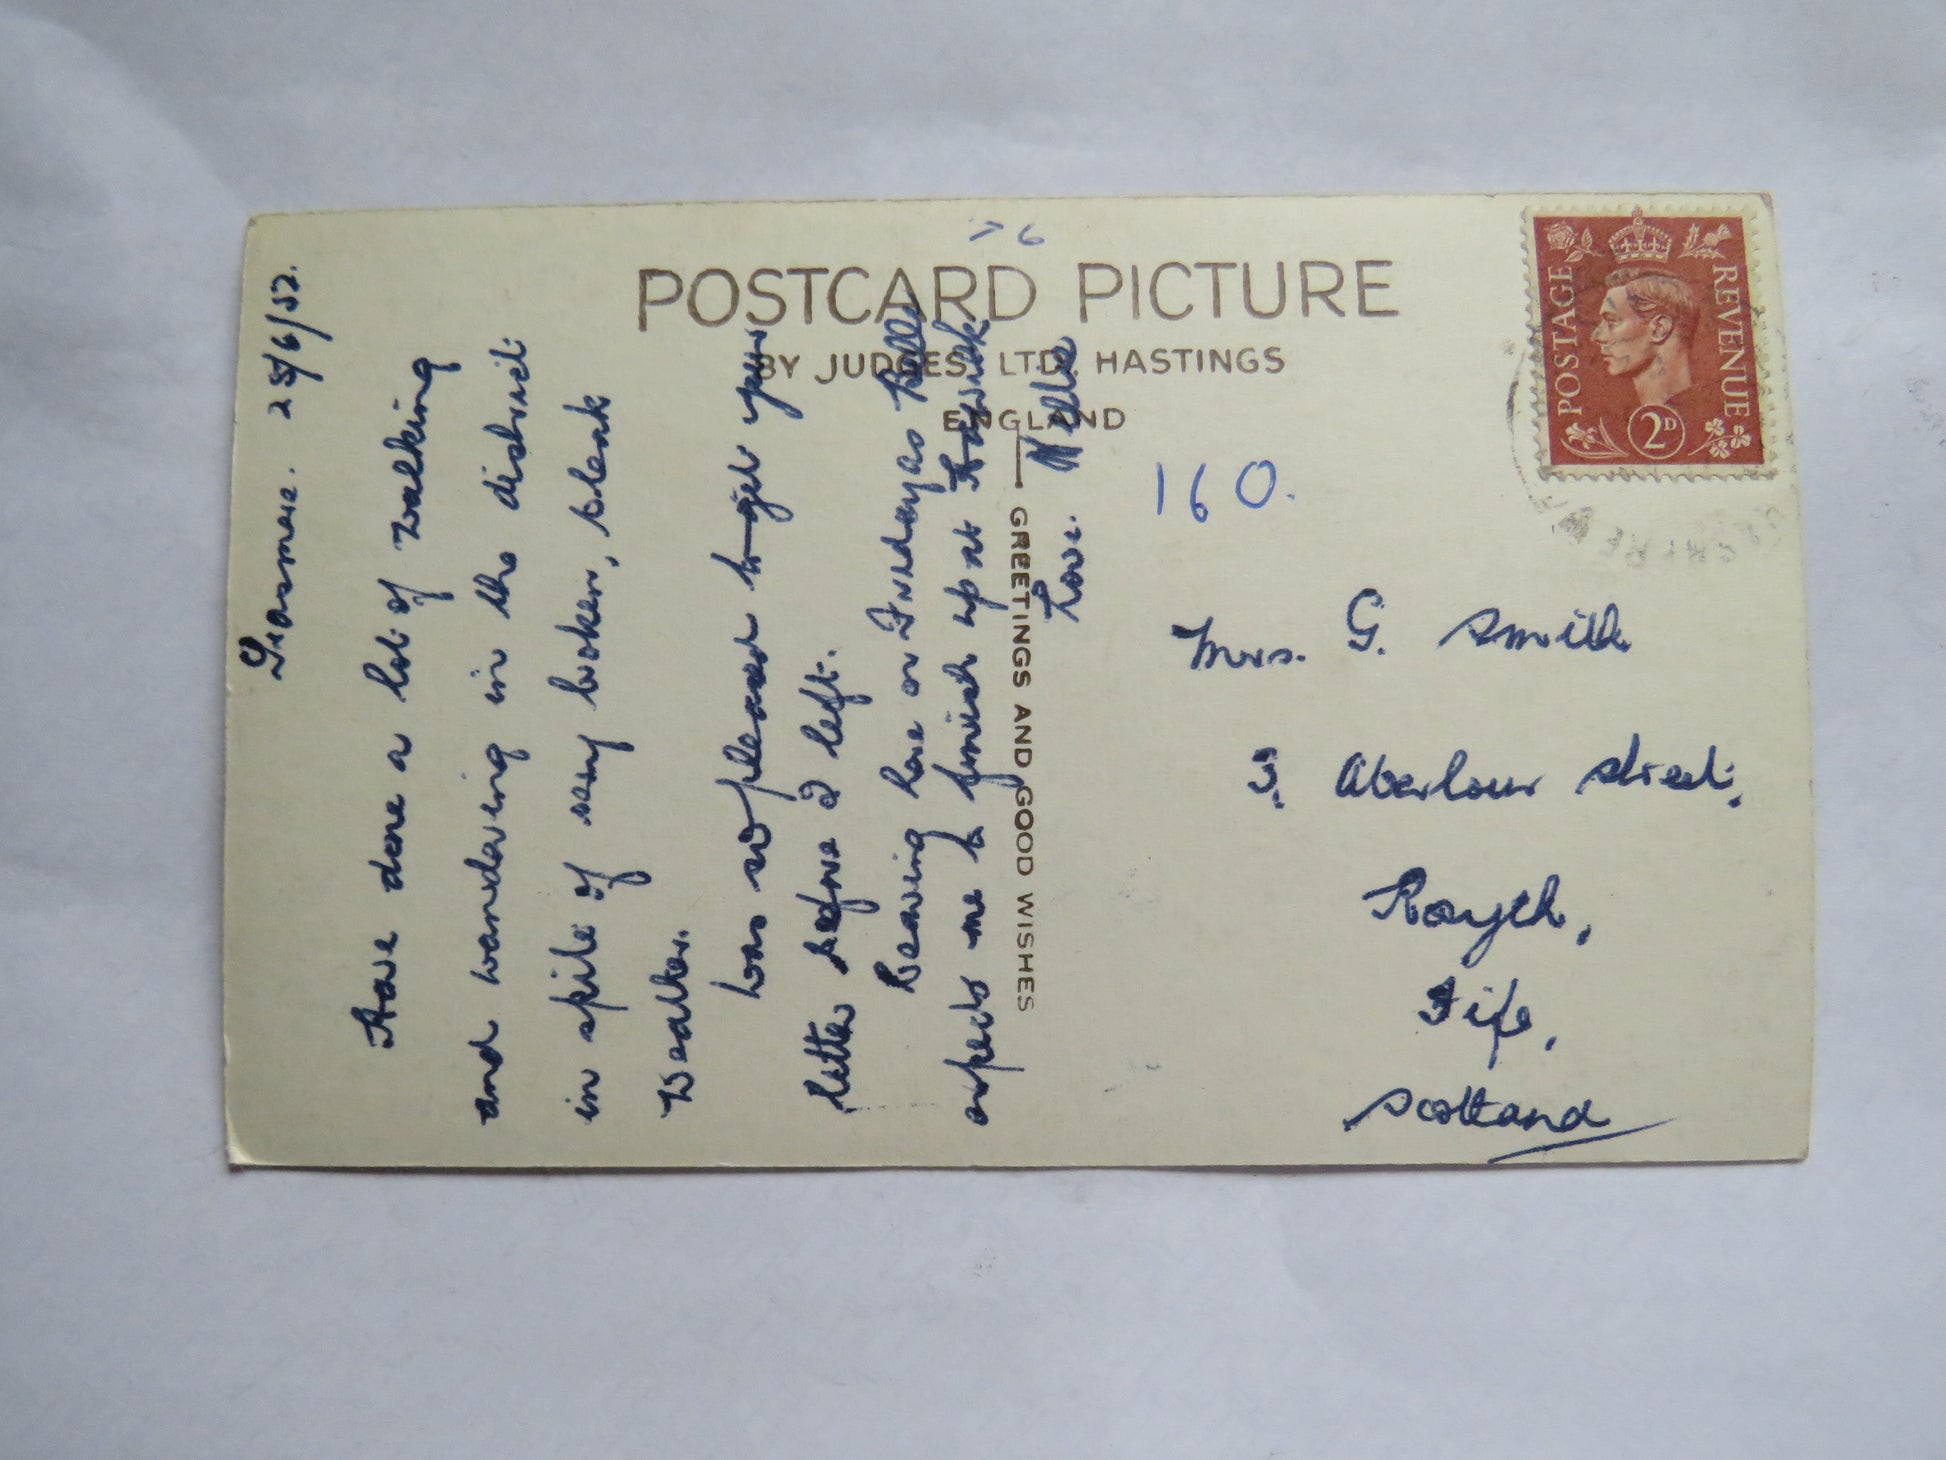 POSTCARD PICTURE
BY JUDGES LTD, HASTINGS
ENGLAND
GREETINGS AND GOOD WISHES
POSTAGE
REVENUE
2D
160.
Grasmere. 25/6/52.
Have done a lot of walking
and wandering in the district
in spite of very broken, bleak
weather.
Was so pleased to get your
letter before I left.
Leaving here on Friday as Bells
expects me to finish up at Hawick
Love. Nellie
Mrs. G. Smith
3, Aberlour Street,
Rosyth,
Fife,
Scotland